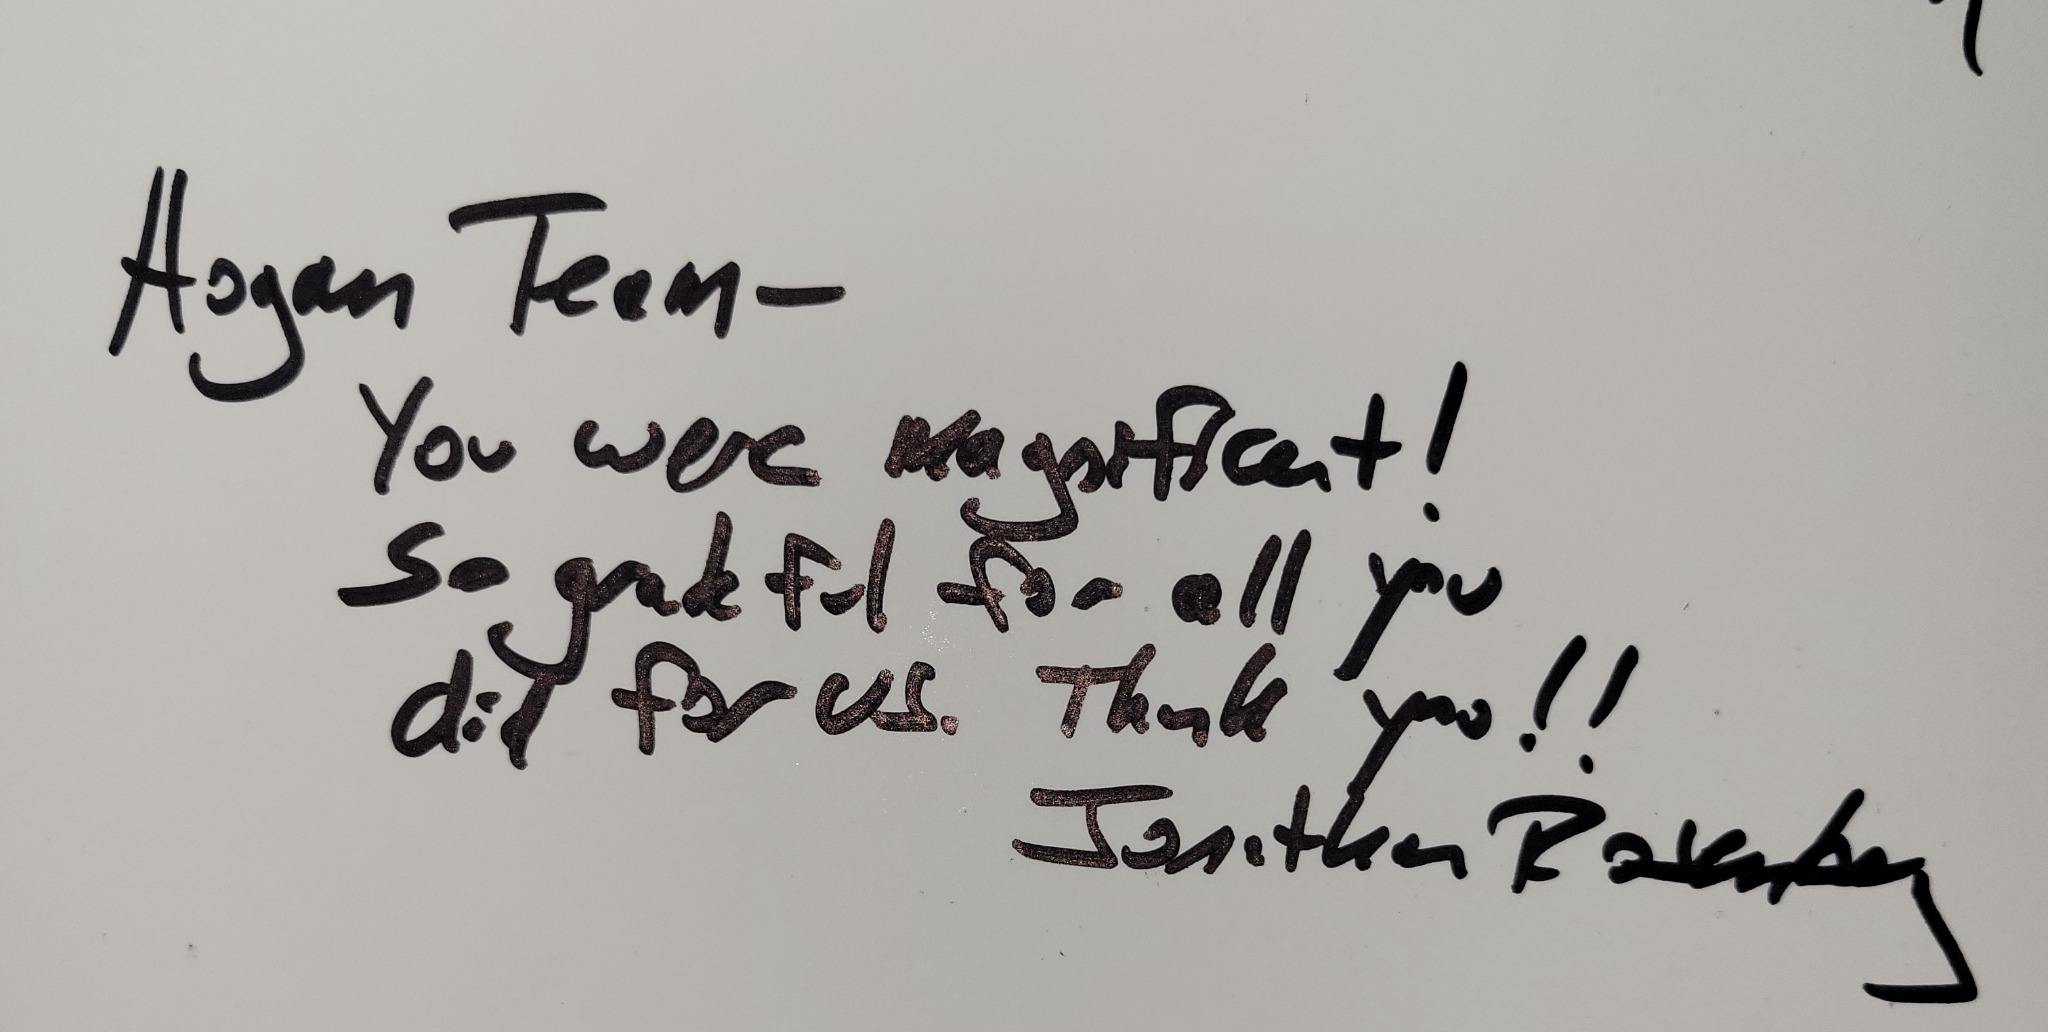 Hogan Team—
You were magnificent!
So grateful for all you
did for us. Thank you!!
Jonathan